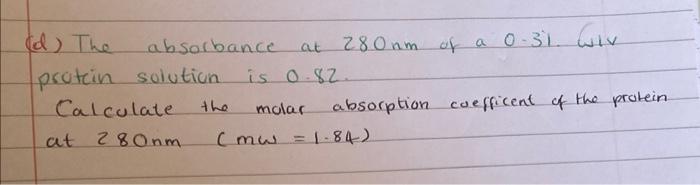 (d) The absorbance at 280nm of a 0.3%. w/v
protein solution is 0.82.
Calculate the molar absorption coefficent of the protein
at 280nm (mw = 1.84)